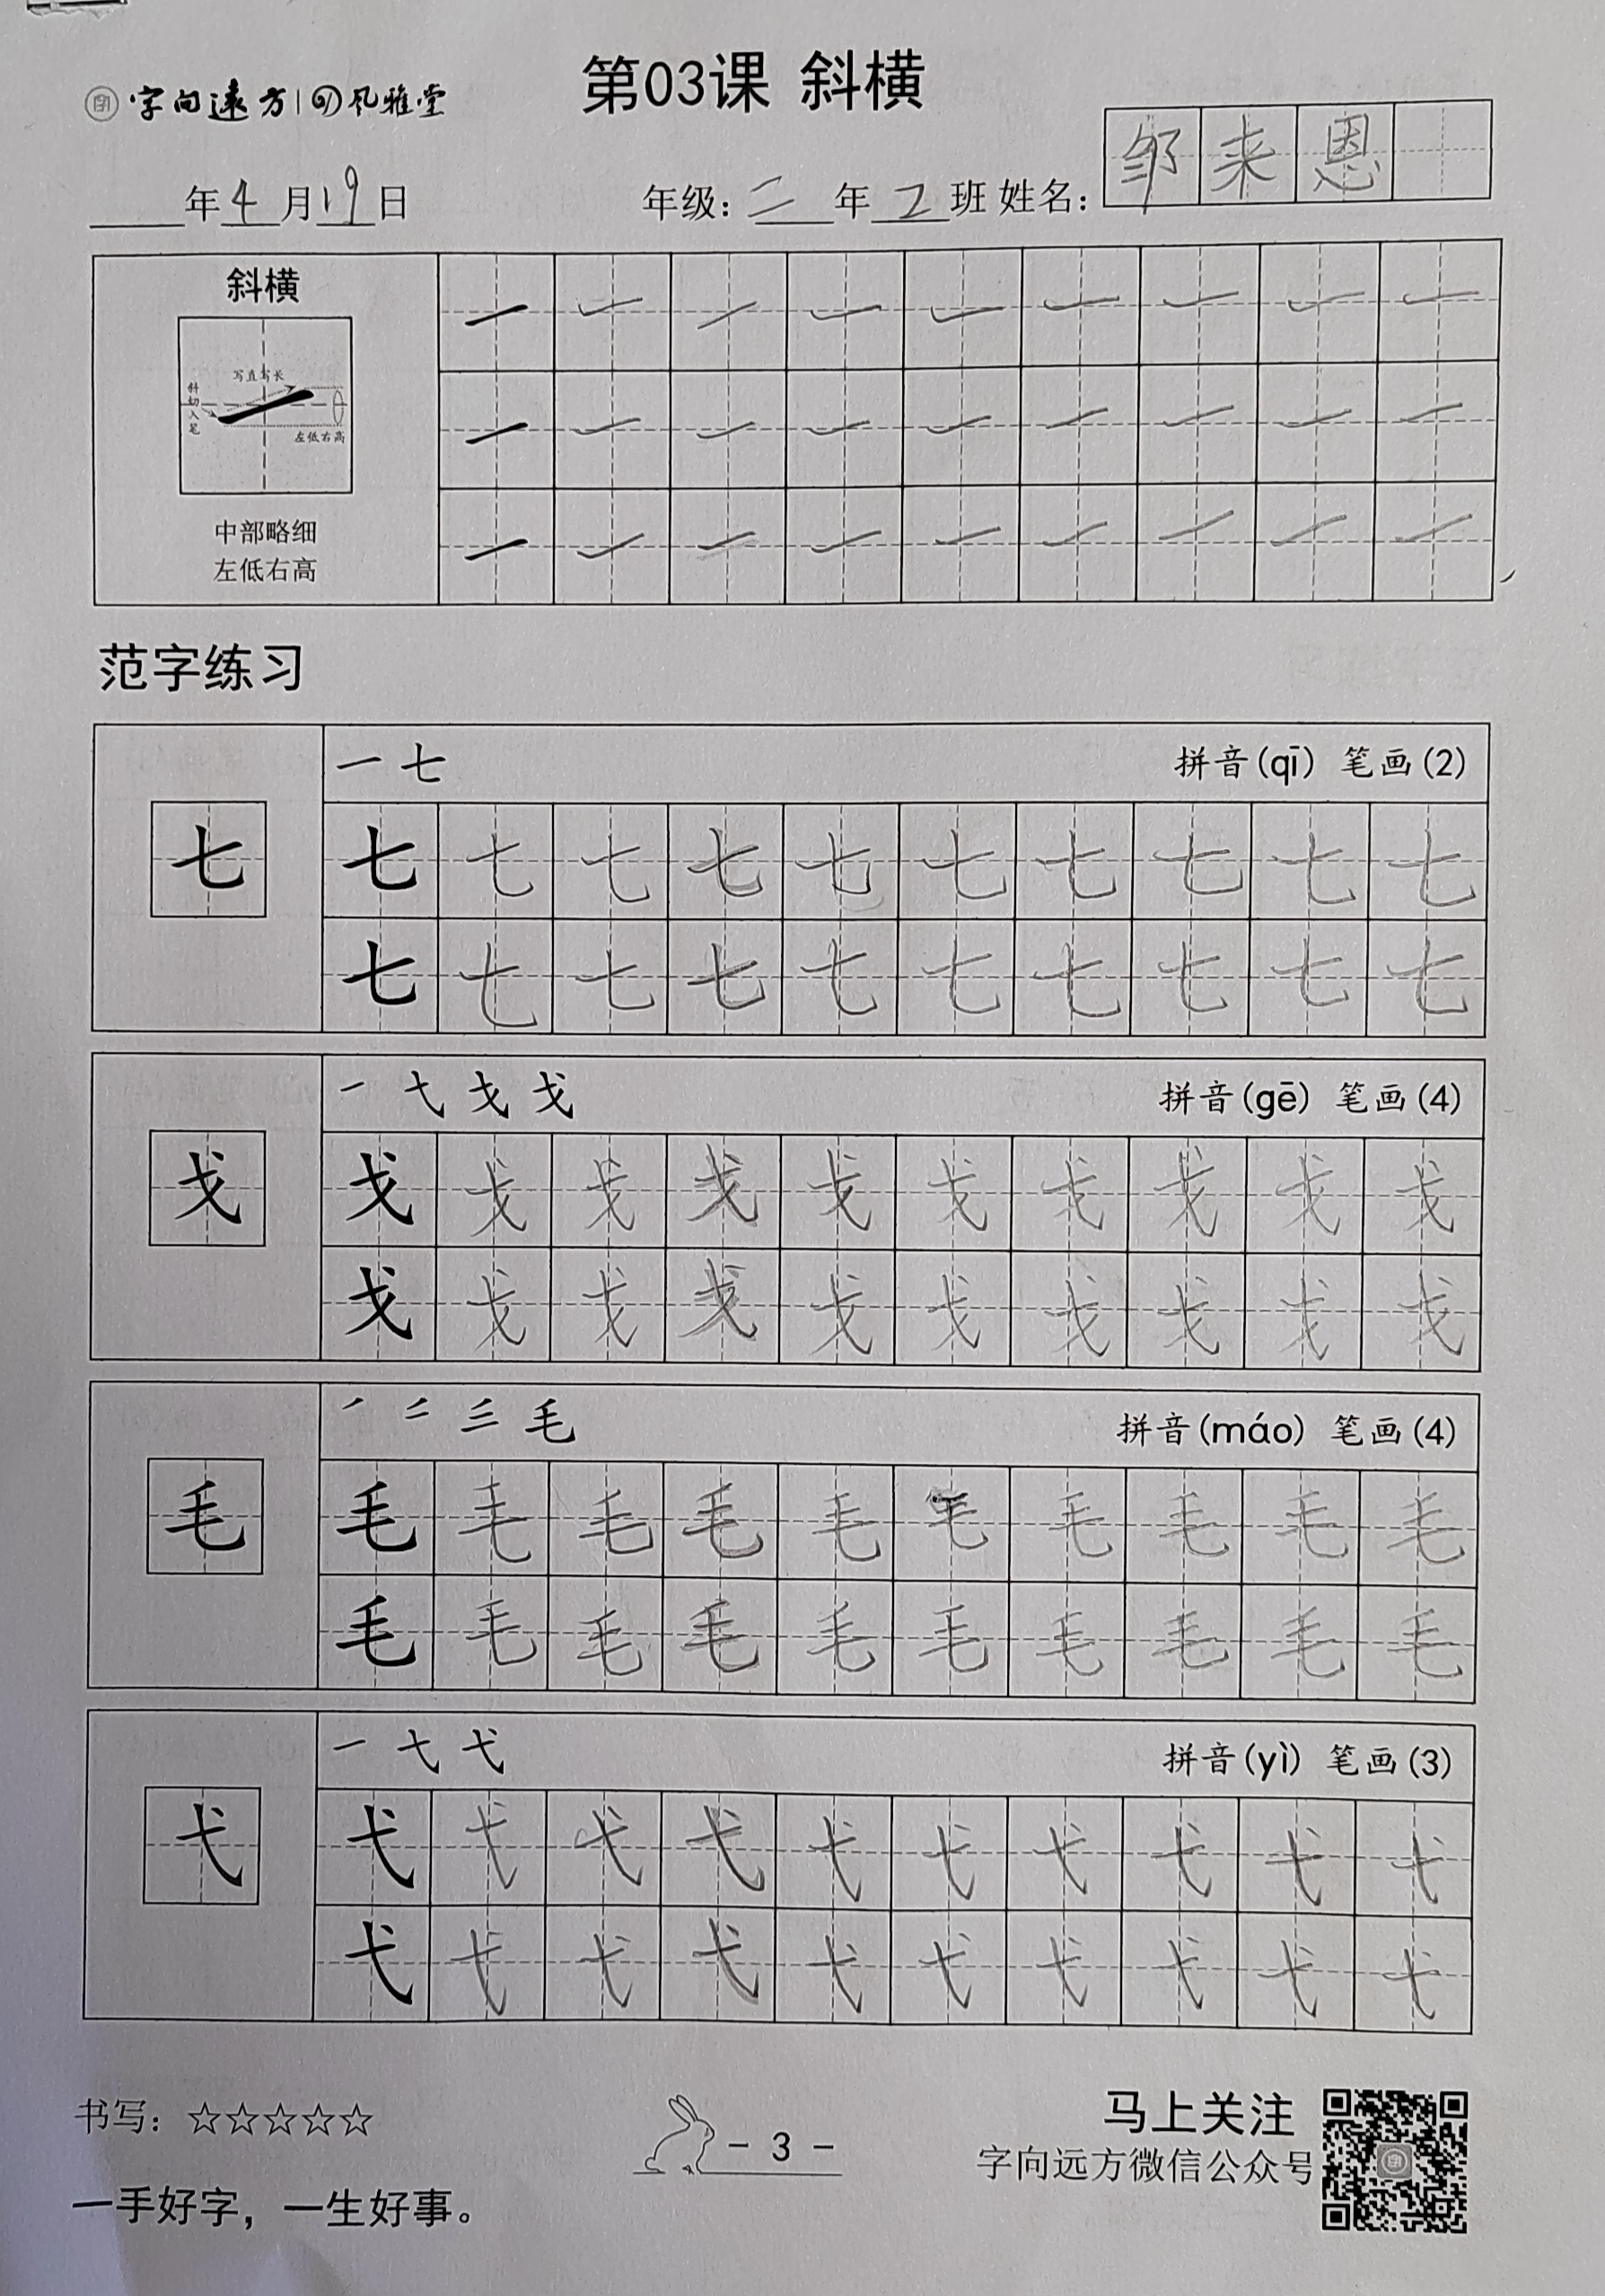 第03课 斜横
字向远方 风雅堂
年4月19日 年级：二年2班 姓名：邹来恩
斜横
写直写长
斜切入笔
左低右高
中部略细
左低右高
范字练习
一 七 拼音(qī) 笔画(2)
七 七 七 七 七 七 七 七 七 七 七
七 七 七 七 七 七 七 七 七 七
一 弋 戈 戈 拼音(gē) 笔画(4)
戈 戈 戈 戈 戈 戈 戈 戈 戈 戈 戈
戈 戈 戈 戈 戈 戈 戈 戈 戈 戈
毛 拼音(máo) 笔画(4)
毛 毛 毛 毛 毛 毛 毛 毛 毛 毛 毛
毛 毛 毛 毛 毛 毛 毛 毛 毛 毛
一 弋 拼音(yì) 笔画(3)
弋 弋 弋 弋 弋 弋 弋 弋 弋 弋 弋
弋 弋 弋 弋 弋 弋 弋 弋 弋 弋
书写：☆☆☆☆☆
- 3 -
马上关注
字向远方微信公众号
一手好字，一生好事。